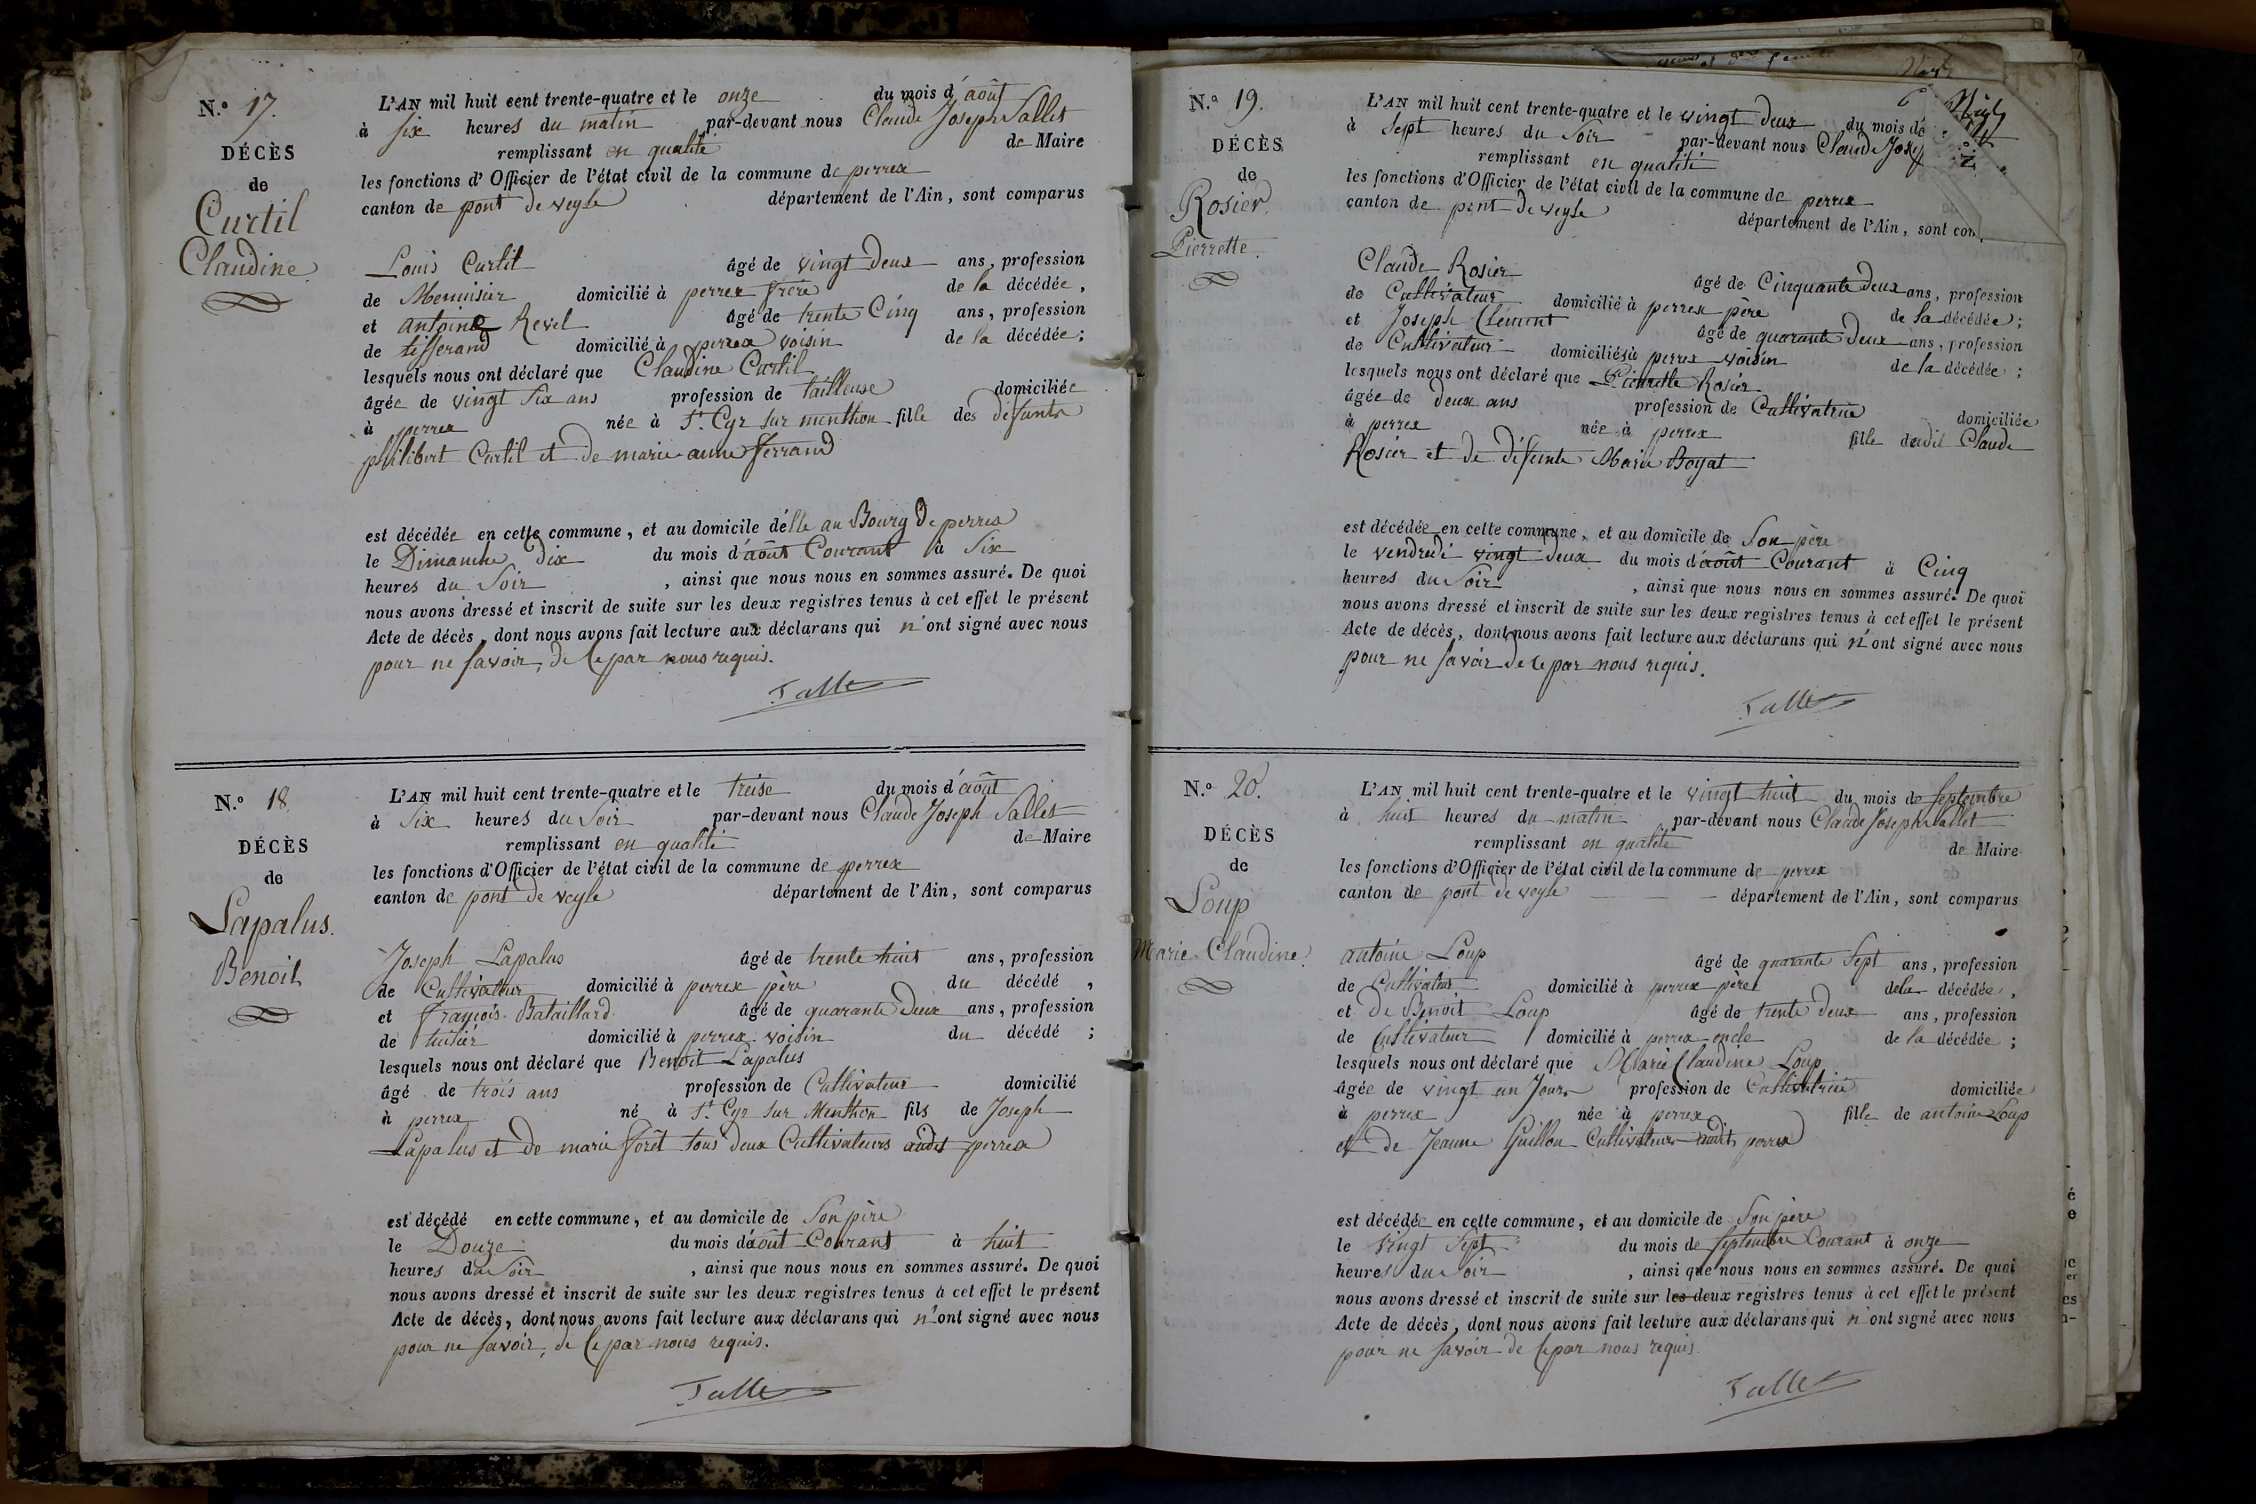 N.º 17.
DÉCÈS
de
Curtil
Claudine
L'AN mil huit cent trente-quatre et le onze du mois d'août
à six heures du matin par-devant nous Claude Joseph Sallet
remplissant en qualité de Maire
les fonctions d'Officier de l'état civil de la commune de perrex
canton de pont de veyle département de l'Ain, sont comparus
Louis Curtil âgé de vingt deux ans, profession
de Menuisier domicilié à perrex frère de la décédée,
et antoine Revel âgé de trente Cinq ans, profession
de tisserand domicilié à perrex voisin de la décédée;
lesquels nous ont déclaré que Claudine Curtil
âgée de vingt six ans profession de tailleuse domiciliée
à perrex née à St Cyr sur menthon fille des défunts
philibert Curtil et de marie anne ferrand
est décédée en cette commune, et au domicile d'elle au Bourg de perrex
le Dimanche dix du mois d'août Courant à Six
heures du Soir, ainsi que nous nous en sommes assuré. De quoi
nous avons dressé et inscrit de suite sur les deux registres tenus à cet effet le présent
Acte de décès, dont nous avons fait lecture aux déclarans qui n'ont signé avec nous
pour ne savoir, de ce par nous requis.
Sallet
N.º 18
DÉCÈS
de
Lapalus.
Benoit
L'AN mil huit cent trente-quatre et le treise du mois d'août
à Six heures du Soir par-devant nous Claude Joseph Sallet
remplissant en qualité de Maire
les fonctions d'Officier de l'état civil de la commune de perrex
canton de pont de veyle département de l'Ain, sont comparus
Joseph Lapalus âgé de trente huit ans, profession
de Cultivateur domicilié à perrex père du décédé,
et françois Bataillard âgé de quarante deux ans, profession
de tuilier domicilié à perrex voisin du décédé;
lesquels nous ont déclaré que Benoit Lapalus
âgé de trois ans profession de Cultivateur domicilié
à perrex né à St Cyr sur Menthon fils de Joseph
Lapalus et de marie forêt tous deux Cultivateurs audit perrex
est décédé en cette commune, et au domicile de Son père
le Douze du mois d'août Courant à huit
heures du Soir, ainsi que nous nous en sommes assuré. De quoi
nous avons dressé et inscrit de suite sur les deux registres tenus à cet effet le présent
Acte de décès, dont nous avons fait lecture aux déclarans qui n'ont signé avec nous
pour ne savoir, de ce par nous requis.
Sallet
N.º 19.
DÉCÈS
de
Rosier.
Pierrette.
L'AN mil huit cent trente-quatre et le vingt deux du mois d
à Sept heures du Soir par-devant nous Claude Jose
remplissant en qualité
les fonctions d'Officier de l'état civil de la commune de perrex
canton de pont de veyle département de l'Ain, sont com
Claude Rosier âgé de Cinquante deux ans, profession
de Cultivateur domicilié à perrex père de la décédée;
et Joseph Clément âgé de quarante deux ans, profession
de Cultivateur domiciliés à perrex voisin de la décédée;
lesquels nous ont déclaré que Pierrette Rosier
âgée de deux ans profession de Cultivatrice domiciliée
à perrex née à perrex fille dudit Claude
Rosier et de défunte Marie Boyat
est décédée en cette commune, et au domicile de Son père
le vendredi vingt deux du mois d'août Courant à Cinq
heures du Soir, ainsi que nous nous en sommes assuré. De quoi
nous avons dressé et inscrit de suite sur les deux registres tenus à cet effet le présent
Acte de décès, dont nous avons fait lecture aux déclarans qui n'ont signé avec nous
pour ne savoir de ce par nous requis.
Sallet
N.º 20.
DÉCÈS
de
Loup
Marie Claudine.
L'AN mil huit cent trente-quatre et le vingt huit du mois de septembre
à huit heures du matin par-devant nous Claude Joseph Sallet
remplissant en qualité de Maire
les fonctions d'Officier de l'état civil de la commune de perrex
canton de pont de veyle département de l'Ain, sont comparus
antoine Loup âgé de quarante Sept ans, profession
de Cultivateur domicilié à perrex père de la décédée,
et de Benoit Loup âgé de trente deux ans, profession
de Cultivateur domicilié à perrex oncle de la décédée;
lesquels nous ont déclaré que Marie Claudine Loup
âgée de vingt un Jours profession de Cultivatrice domiciliée
à perrex née à perrex fille de antoine Loup
et de Jeanne Guillon Cultivateurs audit perrex
est décédée en cette commune, et au domicile de Son père
le vingt Sept du mois de septembre Courant à onze
heures du Soir, ainsi que nous nous en sommes assuré. De quoi
nous avons dressé et inscrit de suite sur les deux registres tenus à cet effet le présent
Acte de décès, dont nous avons fait lecture aux déclarans qui n'ont signé avec nous
pour ne savoir de ce par nous requis
Sallet